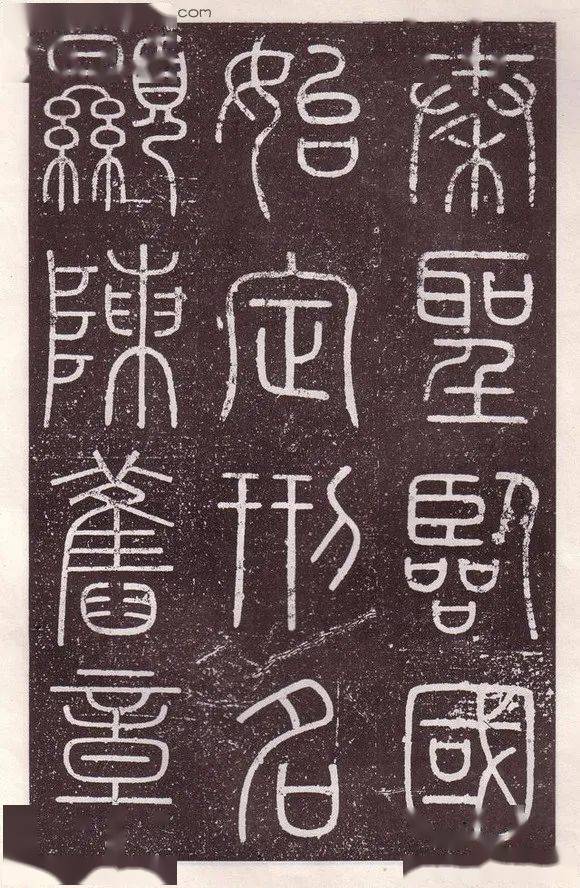 com
秦聖臨國
始定刑名
顯陳舊章